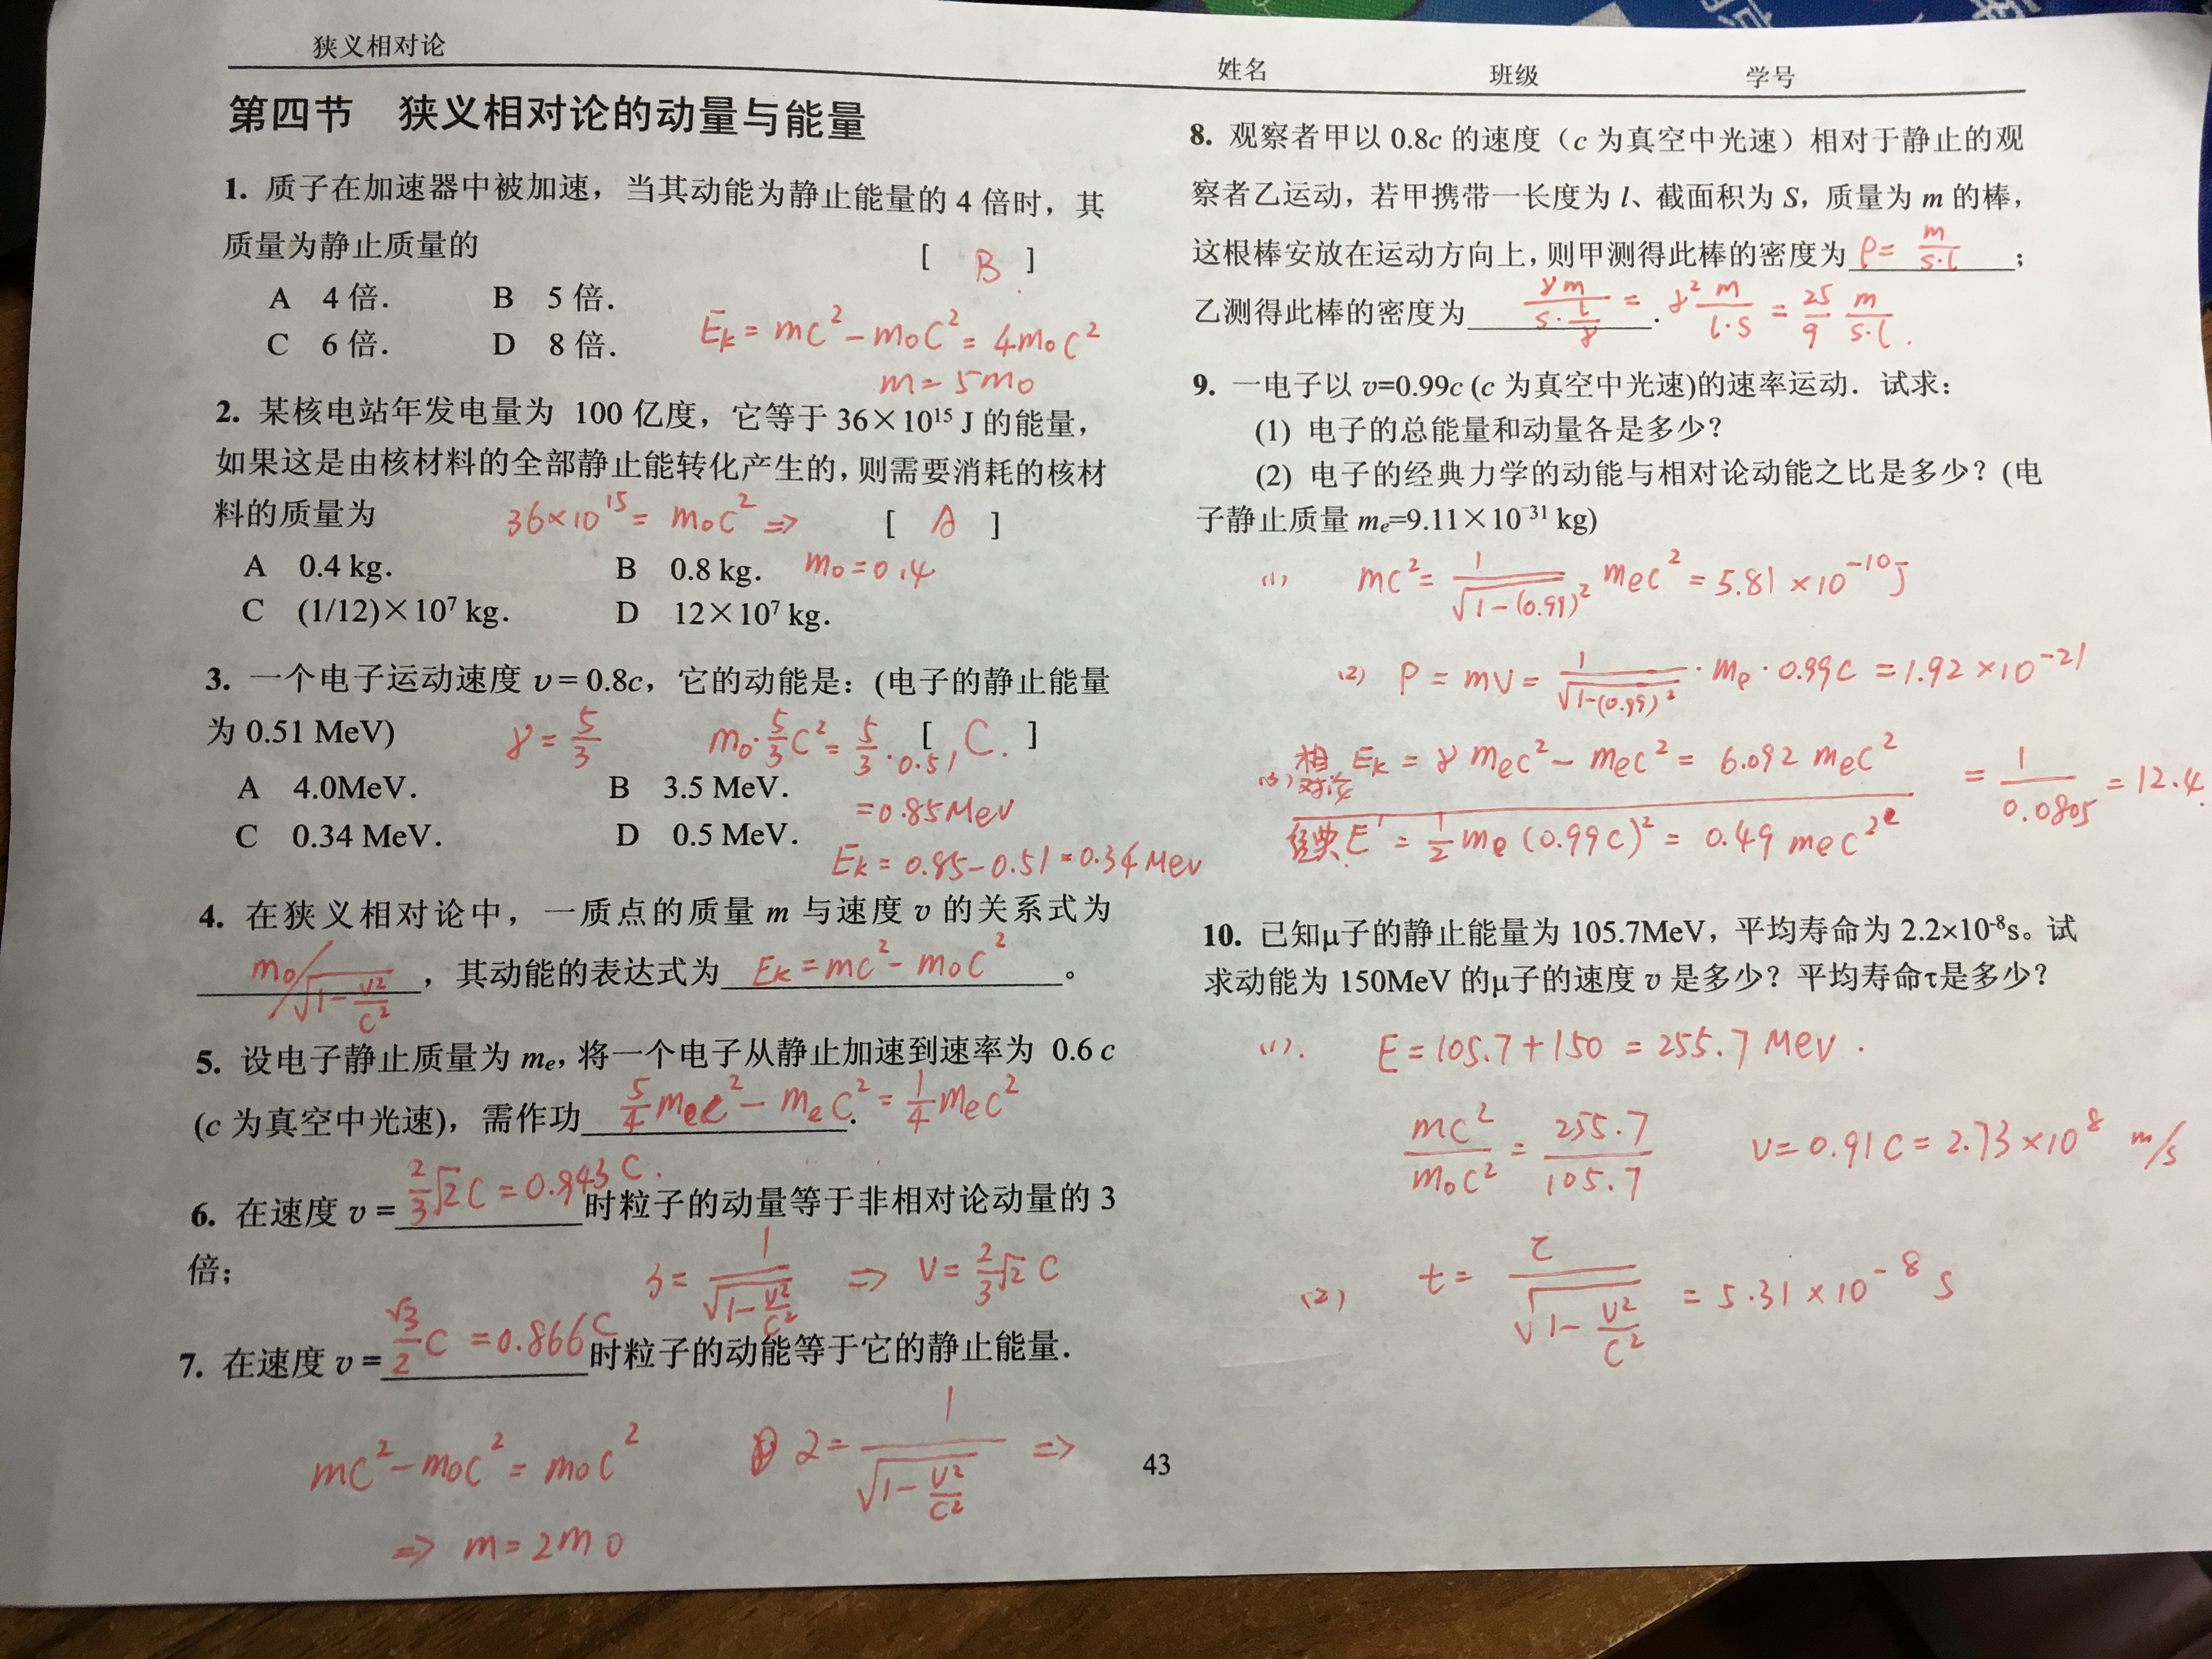 狭义相对论
姓名 班级 学号
第四节 狭义相对论的动量与能量
1. 质子在加速器中被加速，当其动能为静止能量的 4 倍时，其
质量为静止质量的 [ B ]
A 4 倍. B 5 倍.
C 6 倍. D 8 倍.
Ek = mc² − m₀c² = 4m₀c²
m = 5m₀
2. 某核电站年发电量为 100 亿度，它等于 36×10¹⁵ J 的能量，
如果这是由核材料的全部静止能转化产生的，则需要消耗的核材
料的质量为 36×10¹⁵ = m₀c² ⇒ [ A ]
A 0.4 kg. B 0.8 kg. m₀=0.4
C (1/12)×10⁷ kg. D 12×10⁷ kg.
3. 一个电子运动速度 v = 0.8c，它的动能是：(电子的静止能量
为 0.51 MeV) γ = 5/3 m₀·5/3 c² = 5/3·0.51 [ C. ]
A 4.0MeV. B 3.5 MeV.
=0.85Mev
C 0.34 MeV. D 0.5 MeV.
Ek = 0.85−0.51=0.34Mev
4. 在狭义相对论中，一质点的质量 m 与速度 v 的关系式为
m₀/√(1−v²/c²)，其动能的表达式为 Ek = mc² − m₀c² 。
5. 设电子静止质量为 me，将一个电子从静止加速到速率为 0.6 c
(c 为真空中光速)，需作功 5/4 mec² − mec² = 1/4 mec² .
6. 在速度 v = 2/3√2 c = 0.943 c. 时粒子的动量等于非相对论动量的 3
倍；
3 = 1/√(1−v²/c²) ⇒ v = 2/3√2 c
7. 在速度 v = √3/2 c = 0.866c 时粒子的动能等于它的静止能量.
mc² − m₀c² = m₀c² 2 = 1/√(1−v²/c²) ⇒
⇒ m = 2m₀
8. 观察者甲以 0.8c 的速度（c 为真空中光速）相对于静止的观
察者乙运动，若甲携带一长度为 l、截面积为 S，质量为 m 的棒，
这根棒安放在运动方向上，则甲测得此棒的密度为 ρ= m/s·l ；
乙测得此棒的密度为 γm/(s·l/γ) . = γ² m/l·s = 25/9 m/s·l .
9. 一电子以 v=0.99c (c 为真空中光速)的速率运动. 试求：
(1) 电子的总能量和动量各是多少？
(2) 电子的经典力学的动能与相对论动能之比是多少？(电
子静止质量 me=9.11×10⁻³¹ kg)
(1) mc² = 1/√(1−(0.99)²) mec² = 5.81×10⁻¹⁰J
(2) P = mv = 1/√(1−(0.99)²) · me · 0.99c = 1.92×10⁻²¹
(3) 相对论 Ek = γmec² − mec² = 6.092 mec²
= 1/0.0805 = 12.4.
经典E' = 1/2 me (0.99c)² = 0.49 mec²
10. 已知μ子的静止能量为 105.7MeV，平均寿命为 2.2×10⁻⁸s。试
求动能为 150MeV 的μ子的速度 v 是多少？平均寿命τ是多少？
(1). E = 105.7+150 = 255.7 Mev .
mc²/m₀c² = 255.7/105.7 v = 0.91c = 2.73×10⁸ m/s
(2) t = τ/√(1−v²/c²) = 5.31×10⁻⁸ s
43